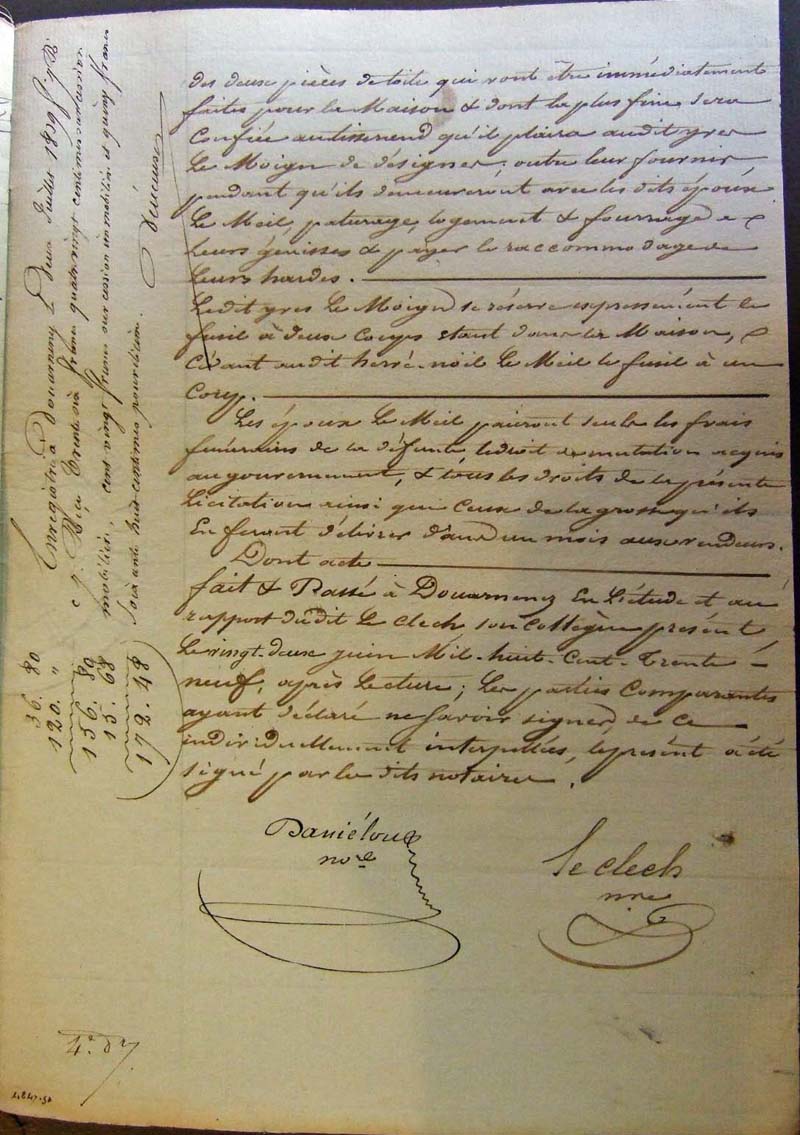 des deux pièces de toile qui vont être immédiatement
faites pour la Maison & dont la plus fine sera
Confiée au tisserend qu'il plaira audit yves
Le Moign de désigner, outre leur fournir
pendant qu'ils demeureront avec les dits époux
Le Meil, paturage, logement & fourrage a
leurs génisses & payer le raccommodage de
leurs hardes.
Ledit yves Le Moign se réserve expressément le
fusil à deux coups étant dans la Maison,
Cédant audit hervé-noël Le Meil le fusil à un
Coup.
Les époux Le Meil paieront seuls les frais
funéraires de la défunte, le droit de mutation acquis
au gouvernement, & tous les droits de la présente
Licitation ainsi que Ceux de la grosse qu'ils
En feront délivrer dans un mois aux vendeurs.
Dont acte
fait & Passé à Douarnenez En L'étude et au
rapport dudit Le Clech son Collègue présent,
Le vingt-deux juin Mil-huit-Cent-Trente-
neuf, après Lecture; Les parties Comparantes
ayant déclaré ne savoir signer, de ce
individuellement interpellées, le présent a été
signé par les dits notaires.
Daniélou
nore
Le clech
nre
Enregistré à Douarnenez le deux Juillet 1839
Reçu Trente six francs quatre vingt centimes succession
mobilière, cent vingt francs succession immobilière et quinze francs
soixante huit centimes pour décime.
36. 80
120. "
156. 80
15. 68
172. 48
4e. D